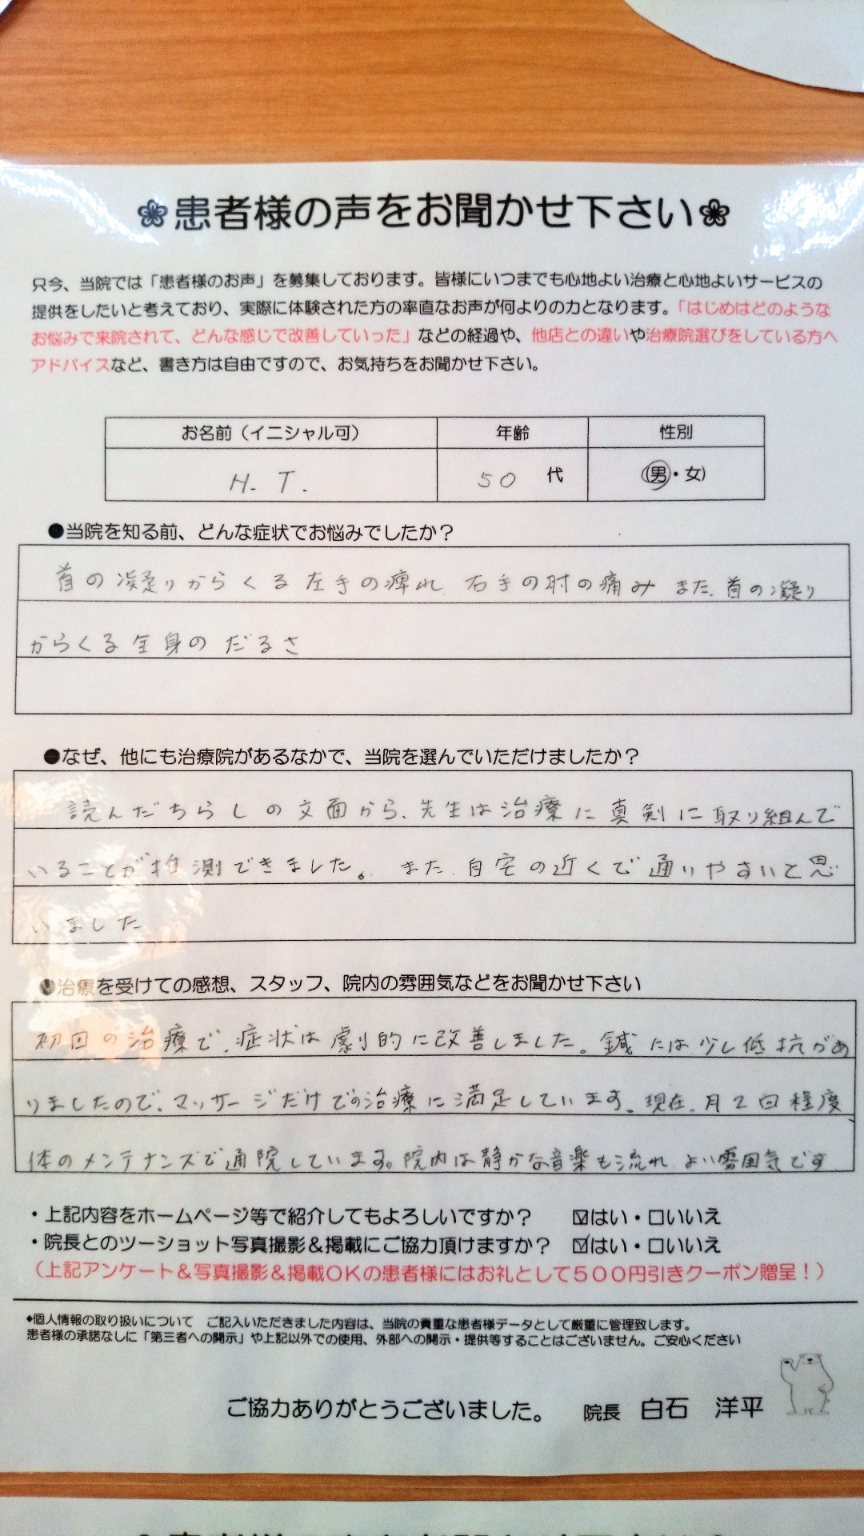 ❀患者様の声をお聞かせ下さい❀
只今、当院では「患者様のお声」を募集しております。皆様にいつまでも心地よい治療と心地よいサービスの
提供をしたいと考えており、実際に体験された方の率直なお声が何よりの力となります。「はじめはどのような
お悩みで来院されて、どんな感じで改善していった」などの経過や、他店との違いや治療院選びをしている方へ
アドバイスなど、書き方は自由ですので、お気持ちをお聞かせ下さい。
お名前（イニシャル可） 年齢 性別
H. T. 50 代 (男・女)
●当院を知る前、どんな症状でお悩みでしたか？
首の凝りからくる左手の痺れ 右手の肘の痛み また、首の凝り
からくる全身のだるさ
●なぜ、他にも治療院があるなかで、当院を選んでいただけましたか？
読んだちらしの文面から、先生は治療に真剣に取り組んで
いることが推測できました。また、自宅の近くで通いやすいと思
いました
●治療を受けての感想、スタッフ、院内の雰囲気などをお聞かせ下さい
初回の治療で、症状は劇的に改善しました。鍼には少し低抗があ
りましたので、マッサージだけでの治療に満足しています。現在、月2回程度、
体のメンテナンスで通院しています。院内は静かな音楽も流れ、よい雰囲気です
・上記内容をホームページ等で紹介してもよろしいですか？ ☑はい・☐いいえ
・院長とのツーショット写真撮影＆掲載にご協力頂けますか？ ☑はい・☐いいえ
（上記アンケート＆写真撮影＆掲載ＯＫの患者様にはお礼として５００円引きクーポン贈呈！）
◆個人情報の取り扱いについて ご記入いただきました内容は、当院の貴重な患者様データとして厳重に管理致します。
患者様の承諾なしに「第三者への開示」や上記以外での使用、外部への開示・提供等することはございません。ご安心ください
ご協力ありがとうございました。 院長 白石 洋平